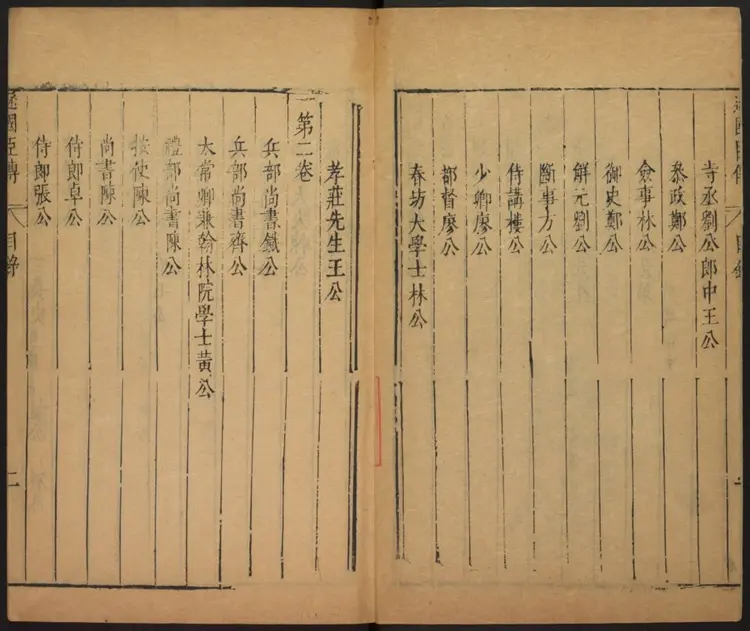 遜國臣傳 目錄
寺丞劉公郎中王公
叅政鄭公
僉事林公
御史鄭公
解元劉公
斷事方公
侍講樓公
少卿廖公
都督廖公
春坊大學士林公
孝莊先生王公
第二卷
兵部尚書鐵公
兵部尚書齊公
太常卿兼翰林院學士黃公
禮部尚書陳公
按使陳公
尚書陳公
侍郎卓公
侍郎張公
遜國臣傳 目錄 二